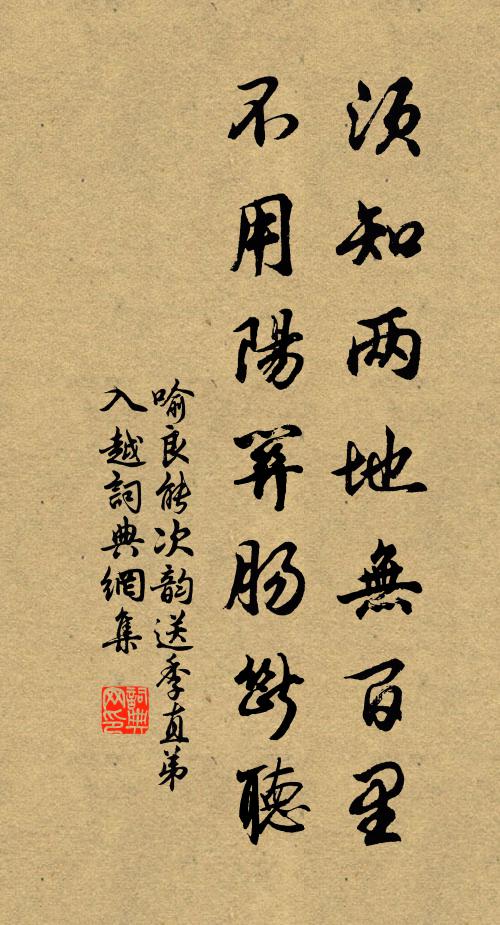 須知两地無百里
不用陽關腸斷聽
喻良能次韵送季直弟
入越詞典網集
詞典
网印